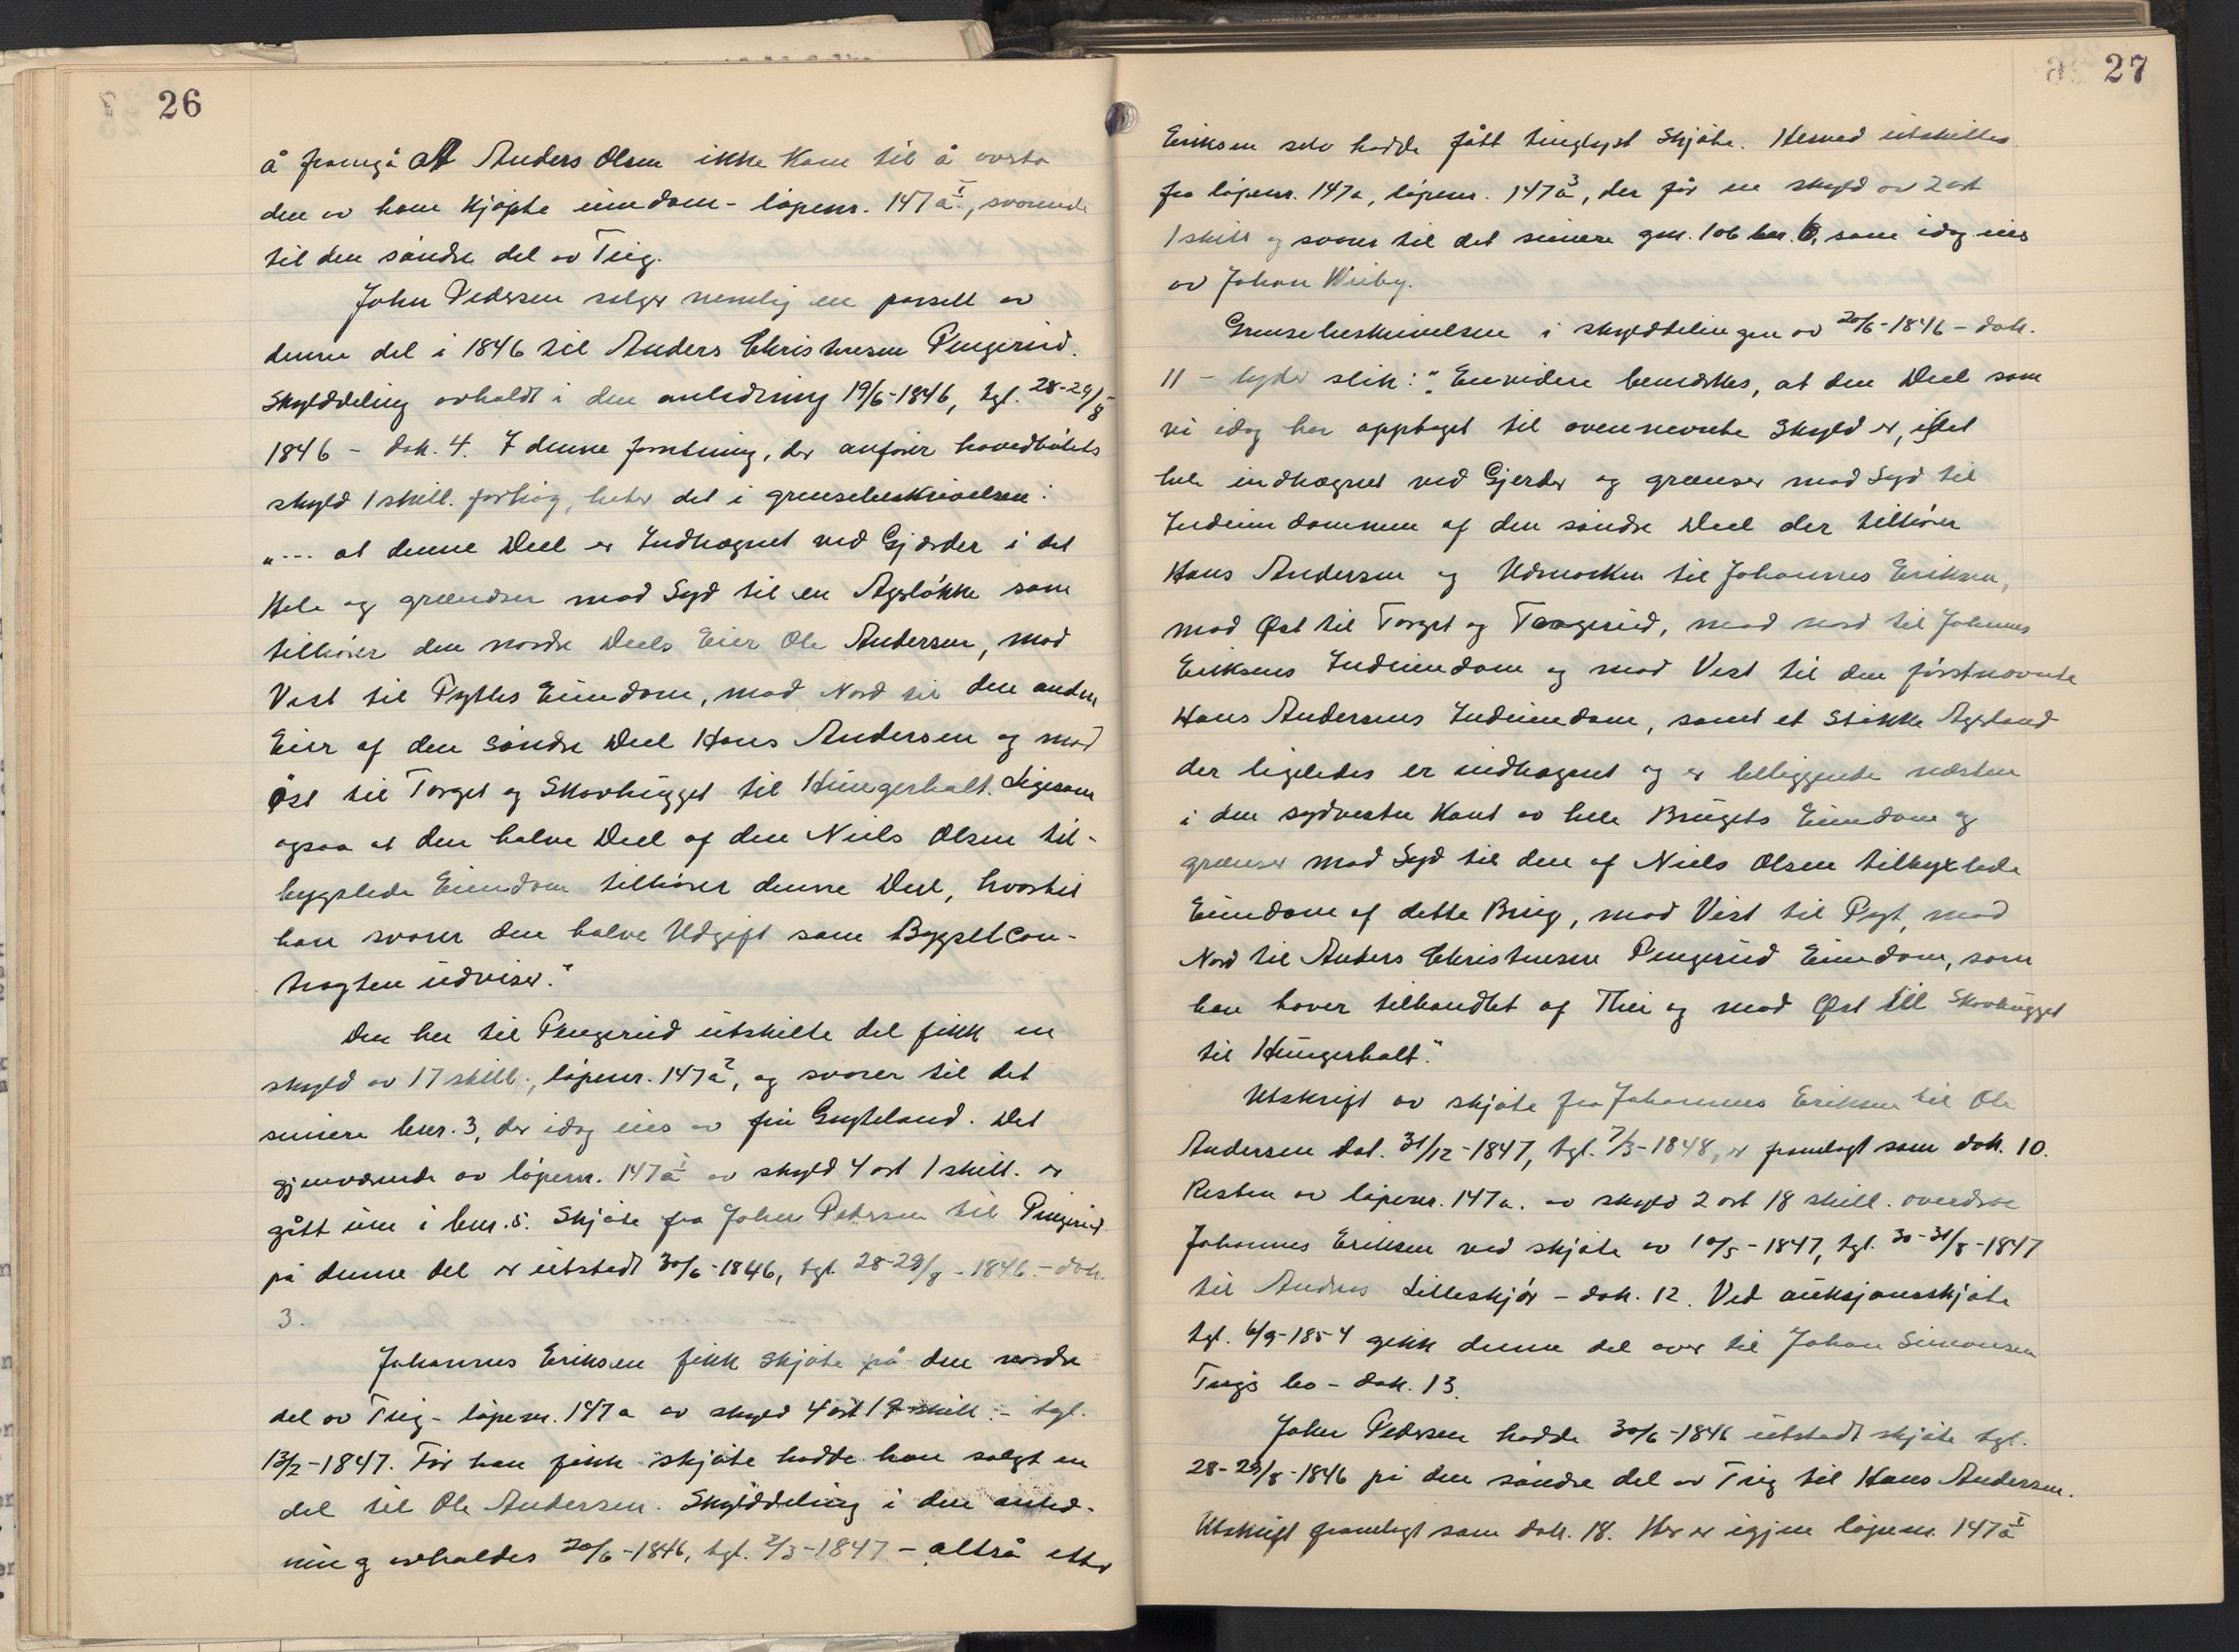 26
å framgå att Anders Olsen ikke kom til å avstå
den av ham kjøpte eiendom - løpenr. 147 a I, svarende
til den søndre del av Teig.
John Pedersen selger nemlig en parsell av
denne del i 1846 til Anders Christensen Pengerud.
Skylddeling avholdt i den anledning 19/6-1846, tgl. 28-29/8-
1846 - dok. 4. I denne forretning, der anfører hovedbølets
skyld 1 skill. for høg, heter det i grensebeskrivelsen:
"... at denne Deel er Indhægnet ved Gjærder i det
Hele og grændser mod Syd til en Agerløkke som
tilhører den nordre Deels Eier Ole Andersen, mod
Vest til Pyttes Eiendom, mod Nord til den anden
Eier af den søndre Deel Hans Andersen og mod
Øst til Torget og Skovhugget til Hungerholt. Ligesom
ogsaa at den halve Deel af den Niels Olsen til-
bygslede Eiendom tilhører denne Deel, hvortil
han svarer den halve Udgift som Bygselcon-
tragten udviser."
Den her til Pengerud utskilte del fikk en
skyld av 17 skill., løpenr. 147 a 2, og svarer til det
senere bnr. 3, der idag eies av fru Gryteland. Det
gjenværende av løpenr. 147 a 1 av skyld 4 ort 1 skill. er
gått inn i bnr. 5. Skjøte fra John Pedersen til Pengerud
på denne del er utstedt 30/6-1846, tgl. 28-29/8-1846 - dok.
3.
Johannes Eriksen fikk skjøte på den nordre
del av Teig - løpenr. 147 a av skyld 4 ort 19 skill. - tgl.
13/2-1847. Før han fikk skjøte hadde han solgt en
del til Ole Andersen. Skylddeling i den anled-
ning avholdes 20/6-1846, tgl. 2/3-1847 - altså etter
27
Eriksen selv hadde fått tinglyst skjøte. Herved utskilles
fra løpenr. 147 a, løpenr. 147 a 3, der får en skyld av 2 ort
1 skill og svarer til det senere gnr. 106 bnr. 6, som idag eies
av Johan Wiiby.
Grensebeskrivelsen i skylddelingen av 20/6-1846 - dok.
11 - lyder slik: "Envidere bemærkes, at den Deel som
vi idag har opptaget til ovennevnte Skyld er, i det
hele indhægnet ved Gjerder og grænser mod Syd til
Indeiendommen af den søndre Deel der tilhører
Hans Andersen og Udmarken til Johannes Eriksen,
mod Øst til Torget og Taagerud, mod nord til Johannes
Eriksens Indeiendom og mod Vest til den førstnævnte
Hans Andersens Indeiendom, samt et Støkke Agerland
der ligeledes er indhægnet og er beliggende næsten
i den sydvestre Kant av hele Brugets Eiendom og
grænser mod Syd til den af Niels Olsen tilbyxlede
Eiendom af dette Brug, mod Vest til Pyt, mod
Nord til Anders Christensen Pengerud Eiendom, som
han haver tilhandlet af Thei og mod Øst til Skovhugget
til Hungerholt."
Utskrift av skjøte fra Johannes Eriksen til Ole
Andersen dat. 31/12-1847, tgl. 7/3-1848, er framlagt som dok. 10.
Resten av løpenr. 147 a. av skyld 2 ort 18 skill. overdrar
Johannes Eriksen ved skjøte av 10/5-1847, tgl. 30-31/8-1847
til Andreas Lilleskjør - dok. 12. Ved auksjonsskjøte
tgl. 6/9-1854 gikk denne del over til Johan Simonsen
Teigs bo - dok. 13.
John Pedersen hadde 30/6-1846 utstedt skjøte tgl.
28-29/8-1846 på den søndre del av Teig til Hans Andersen.
Utskrift framlagt som dok. 18. Her er igjen løpenr. 147 a I